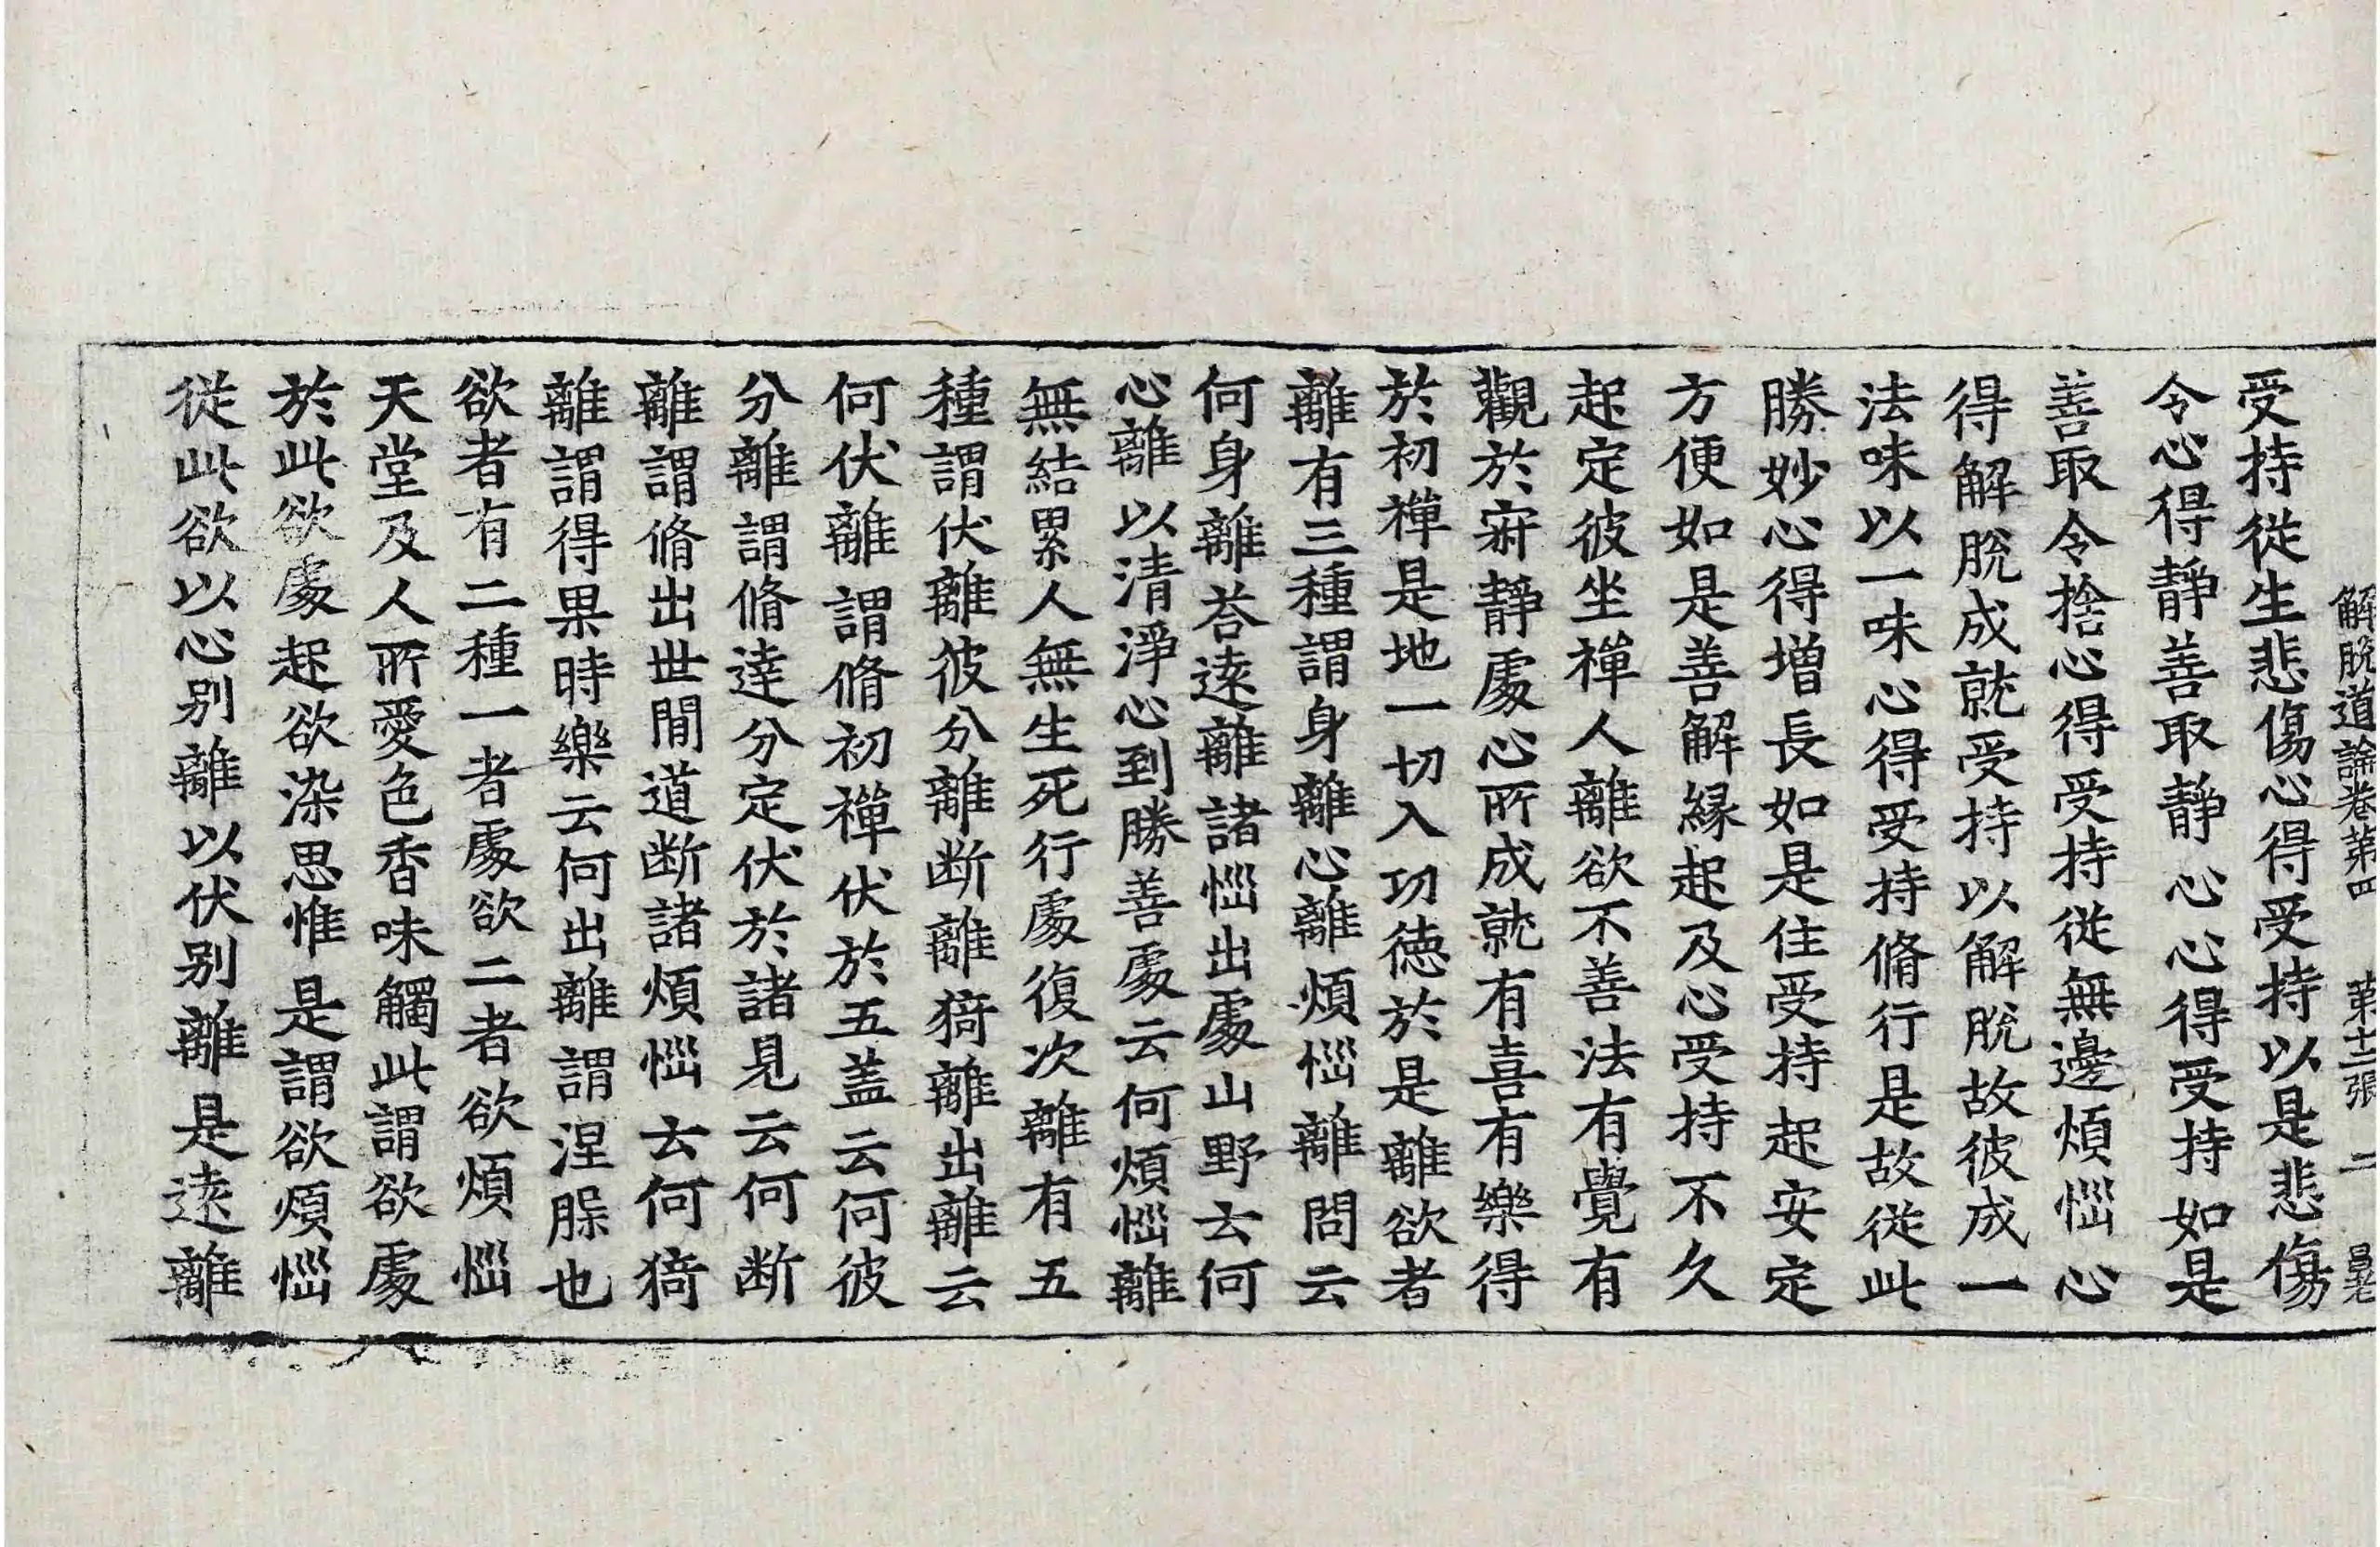 解脫道論卷第四 第十二張 二
受持從生悲傷心得受持以是悲傷
令心得靜善取靜心心得受持如是
善取令捨心得受持從無邊煩惱心
得解脫成就受持以解脫故彼成一
法味以一味心得受持脩行是故從此
勝妙心得增長如是住受持起安定
方便如是善解緣起及心受持不久
起定彼坐禪人離欲不善法有覺有
觀於寂靜處心所成就有喜有樂得
於初禪是地一切入功德於是離欲者
離有三種謂身離心離煩惱離問云
何身離荅遠離諸惱出處山野云何
心離以清淨心到勝善處云何煩惱離
無結累人無生死行處復次離有五
種謂伏離彼分離斷離猗離出離云
何伏離謂脩初禪伏於五盖云何彼
分離謂脩達分定伏於諸見云何断
離謂脩出世間道断諸煩惱云何猗
離謂得果時樂云何出離謂涅槃也
欲者有二種一者處欲二者欲煩惱
天堂及人所愛色香味觸此謂欲處
於此欲處起欲染思惟是謂欲煩惱
從此欲以心別離以伏別離是遠離